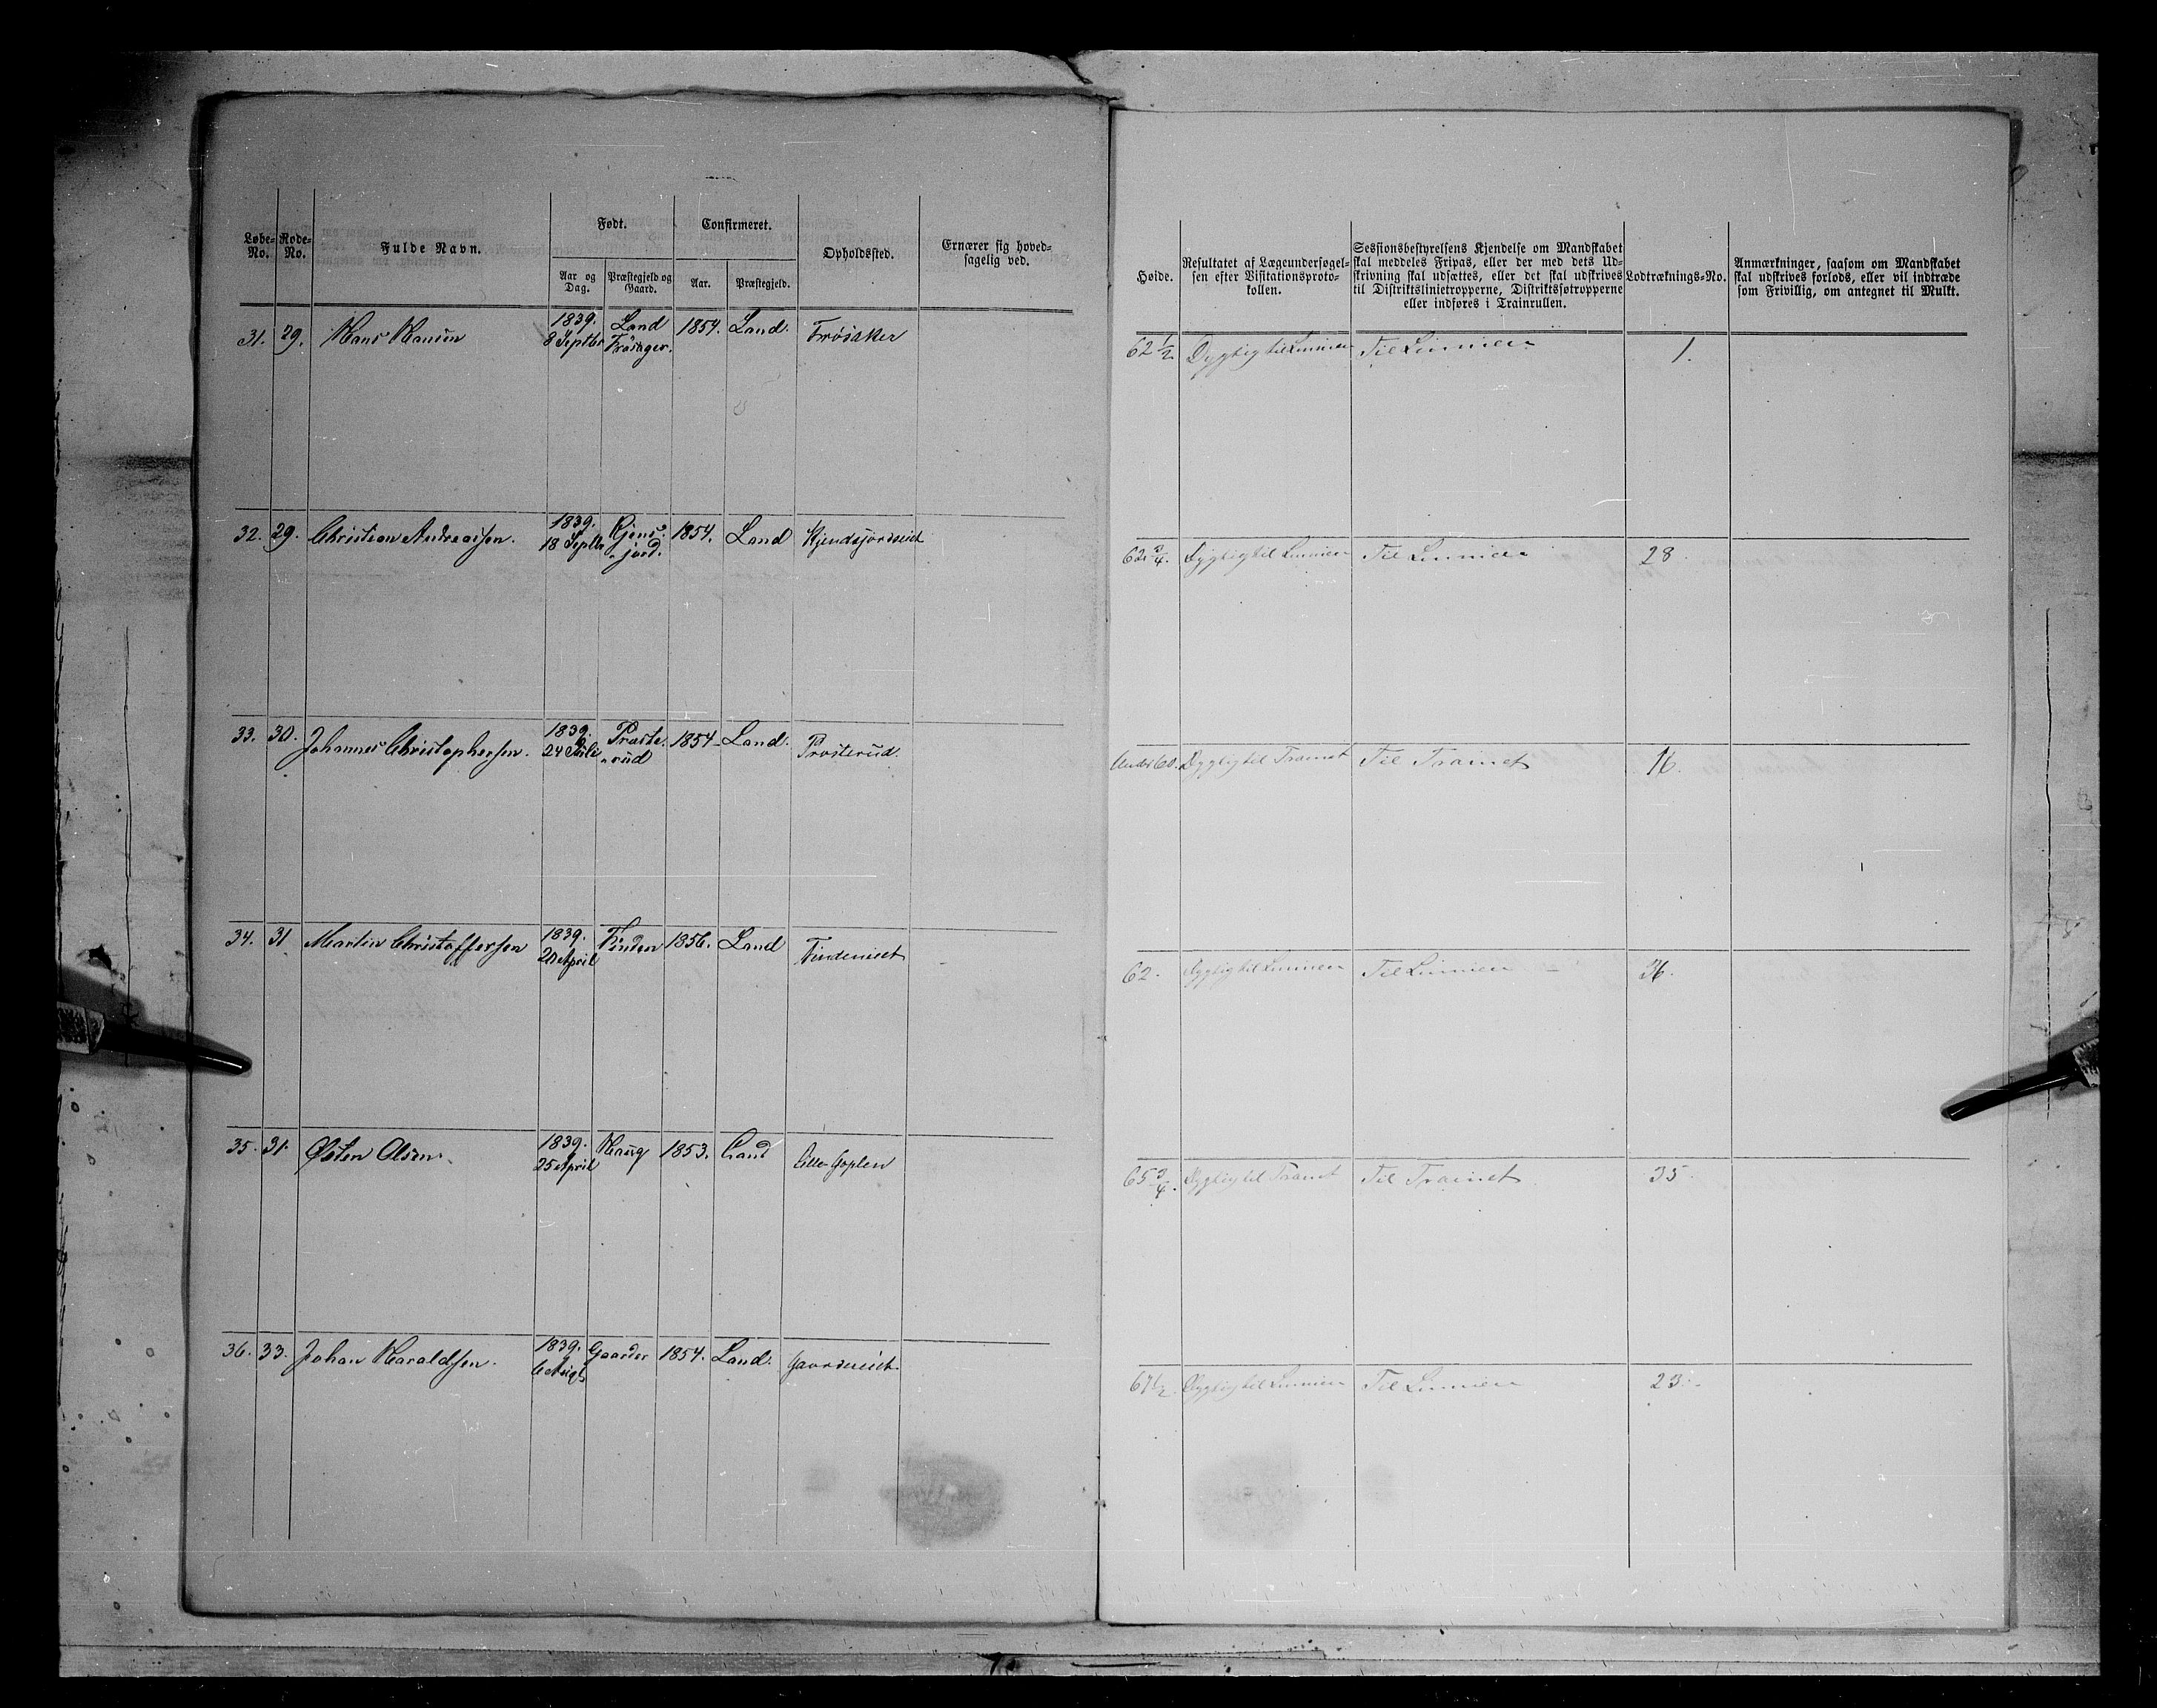 Løbe-No.
Rode-No.
Fulde Navn.
Født.
Aar og Dag.
Præstegjeld og Gaard.
Confirmeret.
Aar.
Præstegjeld.
Opholdssted.
Ernærer sig hoved-
sagelig ved.
Høide.
Resultatet af Lægeundersøgel-
sen efter Visitationsproto-
kollen.
Sessionsbestyrelsens Kjendelse om Mandskabet
skal meddeles Fripas, eller der med dets Ud-
skrivning skal udsættes, eller det skal udskrives
til Distriktslinietropperne, Distriktsføtropperne
eller indføres i Trainrullen.
Lodtræknings-No.
Anmærkninger, saasom om Mandskabet
skal udskrives forlods, eller vil indtræde
som Frivillig, om antegnet til Mulkt.
31. 29. Hans Hansen 1839. 8 Septbr Land 1854. Land. Trøsaker 62 1/2 Dygtig til Linnien Til Linnien 1.
32. 29. Christian Andreassen. 1839. 18 Septbr Kjens-jord. 1854. Land 62 3/4. Dygtig til Linnien Til Linnien 28.
33. 30. Johannes Christophersen. 1839. 24 Præste-rud 1854 Land. Prosterud. Under 60. Dygtig til Trainet Til Trainet 16.
34. 31 Martin Christoffersen 1839. 20 April Finden 1856. Land 62. Dygtig til Linnien Til Linnien 36.
35. 31. Østen Olsen. 1839. 25 April Haug 1853. Land Lille Goplen 65 3/4. Dygtig til Trainet Til Trainet 35.
36. 33. Johan Haraldsen. 1839. Gaarder 1854. Land. 67 1/2 Dygtig til Linnien Til Linnien 23.